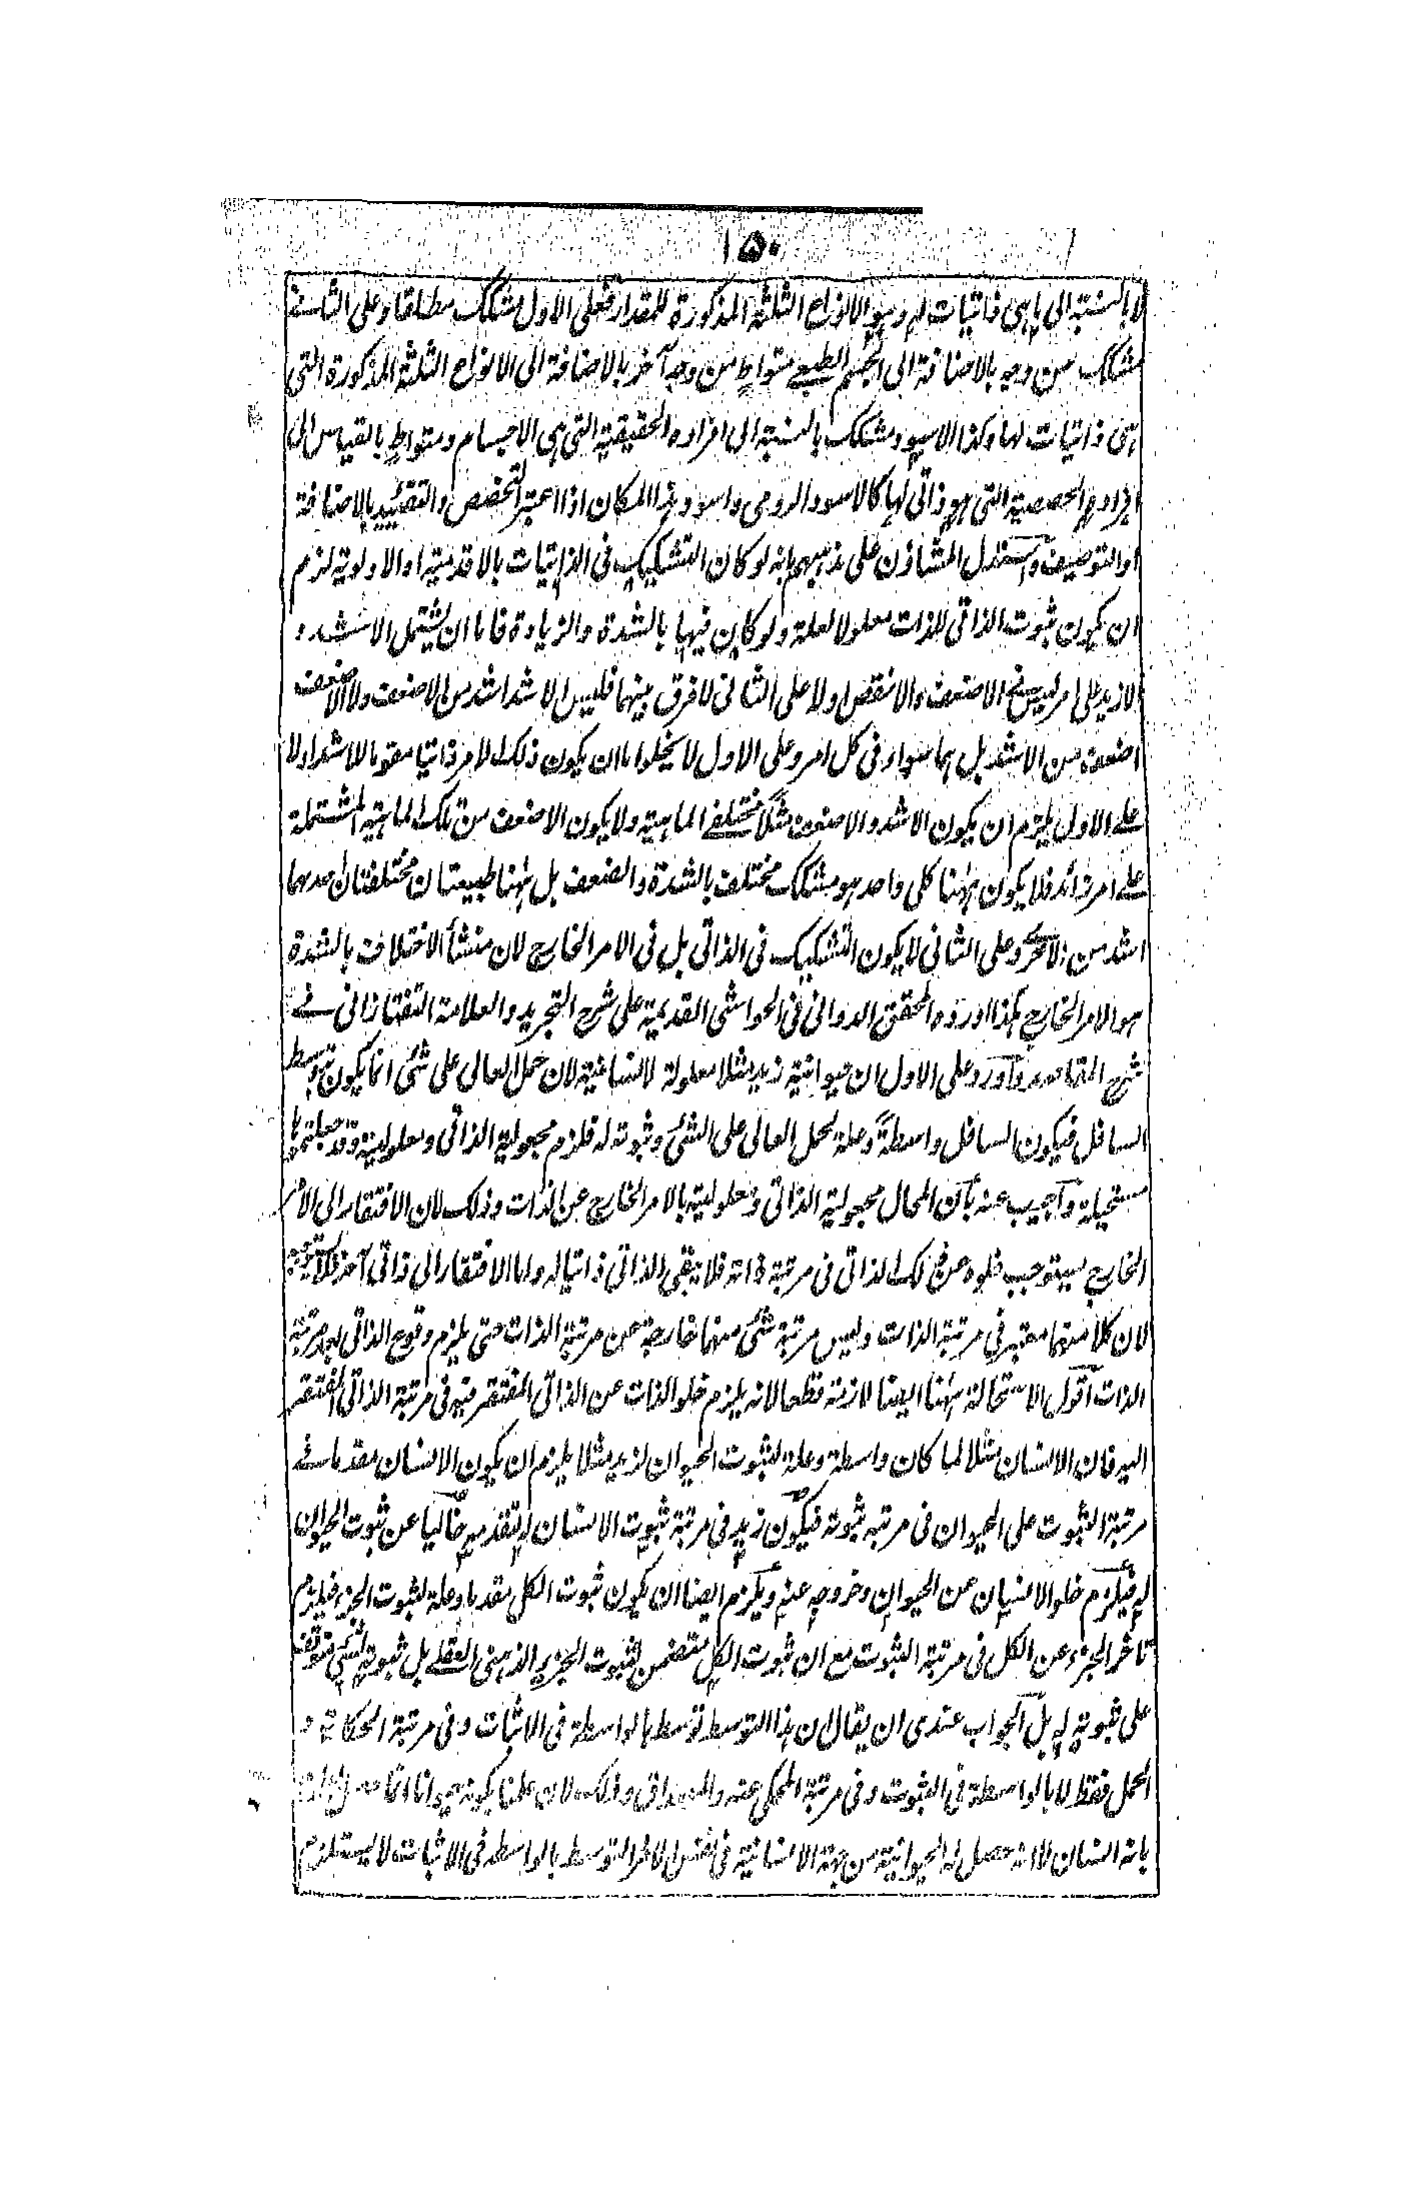 ١٥٠
لا بالنسبة الى ما هى ذاتيات له وهو الانواع الثلثة المذكورة للمقدار فعلى الاول مشكك مطلقا وعلى الثانے
مشكك من وجه بالاضافة الى الجسم الطبعے متواطٍ من وجه آخر بالاضافة الى الانواع الثلثة المذكورة التى
هى ذاتيات لها وكذا الاسود مشكك بالنسبة الى افراده الحقيقية التى هى الاجسام ومتواطٍ بالقياس الى
افراده الحصصية التى هو ذاتى لها كالاسود الرومى واسود هذا المكان اذا اعتبر التخصص والتقئييد بالاضافة
او التوصيف واستدل المشاؤن على مذهبهم بانه لو كان التشكيك فى الذاتيات بالاقدمية او الاولوية لزم
ان يكون ثبوت الذاتى للذات معلولا لعلة ولو كان فيها بالشدة والزيادة فاما ان يشتمل الاشد و
الازيد على امر ليس فى الاضعف والانقص او لا على الثانى لا فرق بينهما فليس الاشد اشد من الاضعف ولا الاضعف
اضعف من الاشد بل هما سواء فى كل امر وعلى الاول لا يخلو اما ان يكون ذلك الامر ذاتيا مقوما للاشد او لا
علے الاول يلزم ان يكون الاشد والاضعف مثلاً مختلفے الماهية ولا يكون الاضعف من تلك الماهية المشتملة
علے امر زائد فلا يكون ههنا كلى واحد هو مشكك مختلف بالشدة والضعف بل ههنا طبيعتان مختلفتان احدهما
اشد من الاخر وعلى الثانى لا يكون التشكيك فى الذاتى بل فى الامر الخارج لان منشأ الاختلاف بالشدة
هو الامر الخارج هكذا اورده المحقق الدوانى فى الحواشى القديمة على شرح التجريد والعلامة التفتازانى فے
شرح المقاصد واورد على الاول ان حيوانية زيد مثلا معلولة لانسانيته لان حمل العالى على شئ انما يكون بتوسط
السافل فيكون السافل واسطةً وعلة لحمل العالى على الشئ وثبوته له فلزم مجعولية الذاتى ومعلوليته وقد جعلتموها
مستحيلة واجيب عنه بأن المحال مجعولية الذاتى ومعلوليته بالامر الخارج عن الذات وذلك لان الافتقار الى الامر
الخارج يستوجب خلوه عن ذلك الذاتى فى مرتبة ذاته فلا يبقى الذاتى ذاتيا له واما الافتقار الى ذاتى آخر فلا يستوجبه
لان كلا منهما معتبر فى مرتبة الذات وليس مرتبة شئ منهما خارجة عن مرتبة الذات حتى يلزم وقوع الذاتى بعد مرتبة
الذات اقول الاستحالة ههنا ايضا لازمة قطعا لانه يلزم خلو الذات عن الذاتى المفتقر فيه فى مرتبة الذاتى المفتقر
اليه فان الانسان مثلا لما كان واسطة وعلة لثبوت الحيوان لزيد مثلا يلزم ان يكون الانسان مقدما فے
مرتبة الثبوت على الحيوان فى مرتبة ثبوته فيكون زيد فى مرتبة ثبوت الانسان له لتقدمه خاليا عن ثبوت الحيوان
له فيلزم خلو الانسان عن الحيوان وخروجه عنه ويلزم ايضا ان يكون ثبوت الكل مقدما وعلة لثبوت الجزء فيلزم
تأخر الجزء عن الكل فى مرتبة الثبوت مع ان ثبوت الكل متضمن لثبوت الجزء الذهنى العقلے بل ثبوته لشئ متوقف
على ثبوته له بل الجواب عندى ان يقال ان هذا التوسط توسط بالواسطة فى الاثبات وفى مرتبة الحكاية و
الحمل فقط لا بالواسطة فى الثبوت وفى مرتبة المحكى عنه والمصداق وذلك لان علمنا بكونه حيوانا انما
بانه انسان لا انه حصل له الحيوانية من جهة الانسانية فى نفس الامر التوسط بالواسطة فى الاثبات لا يستلزم